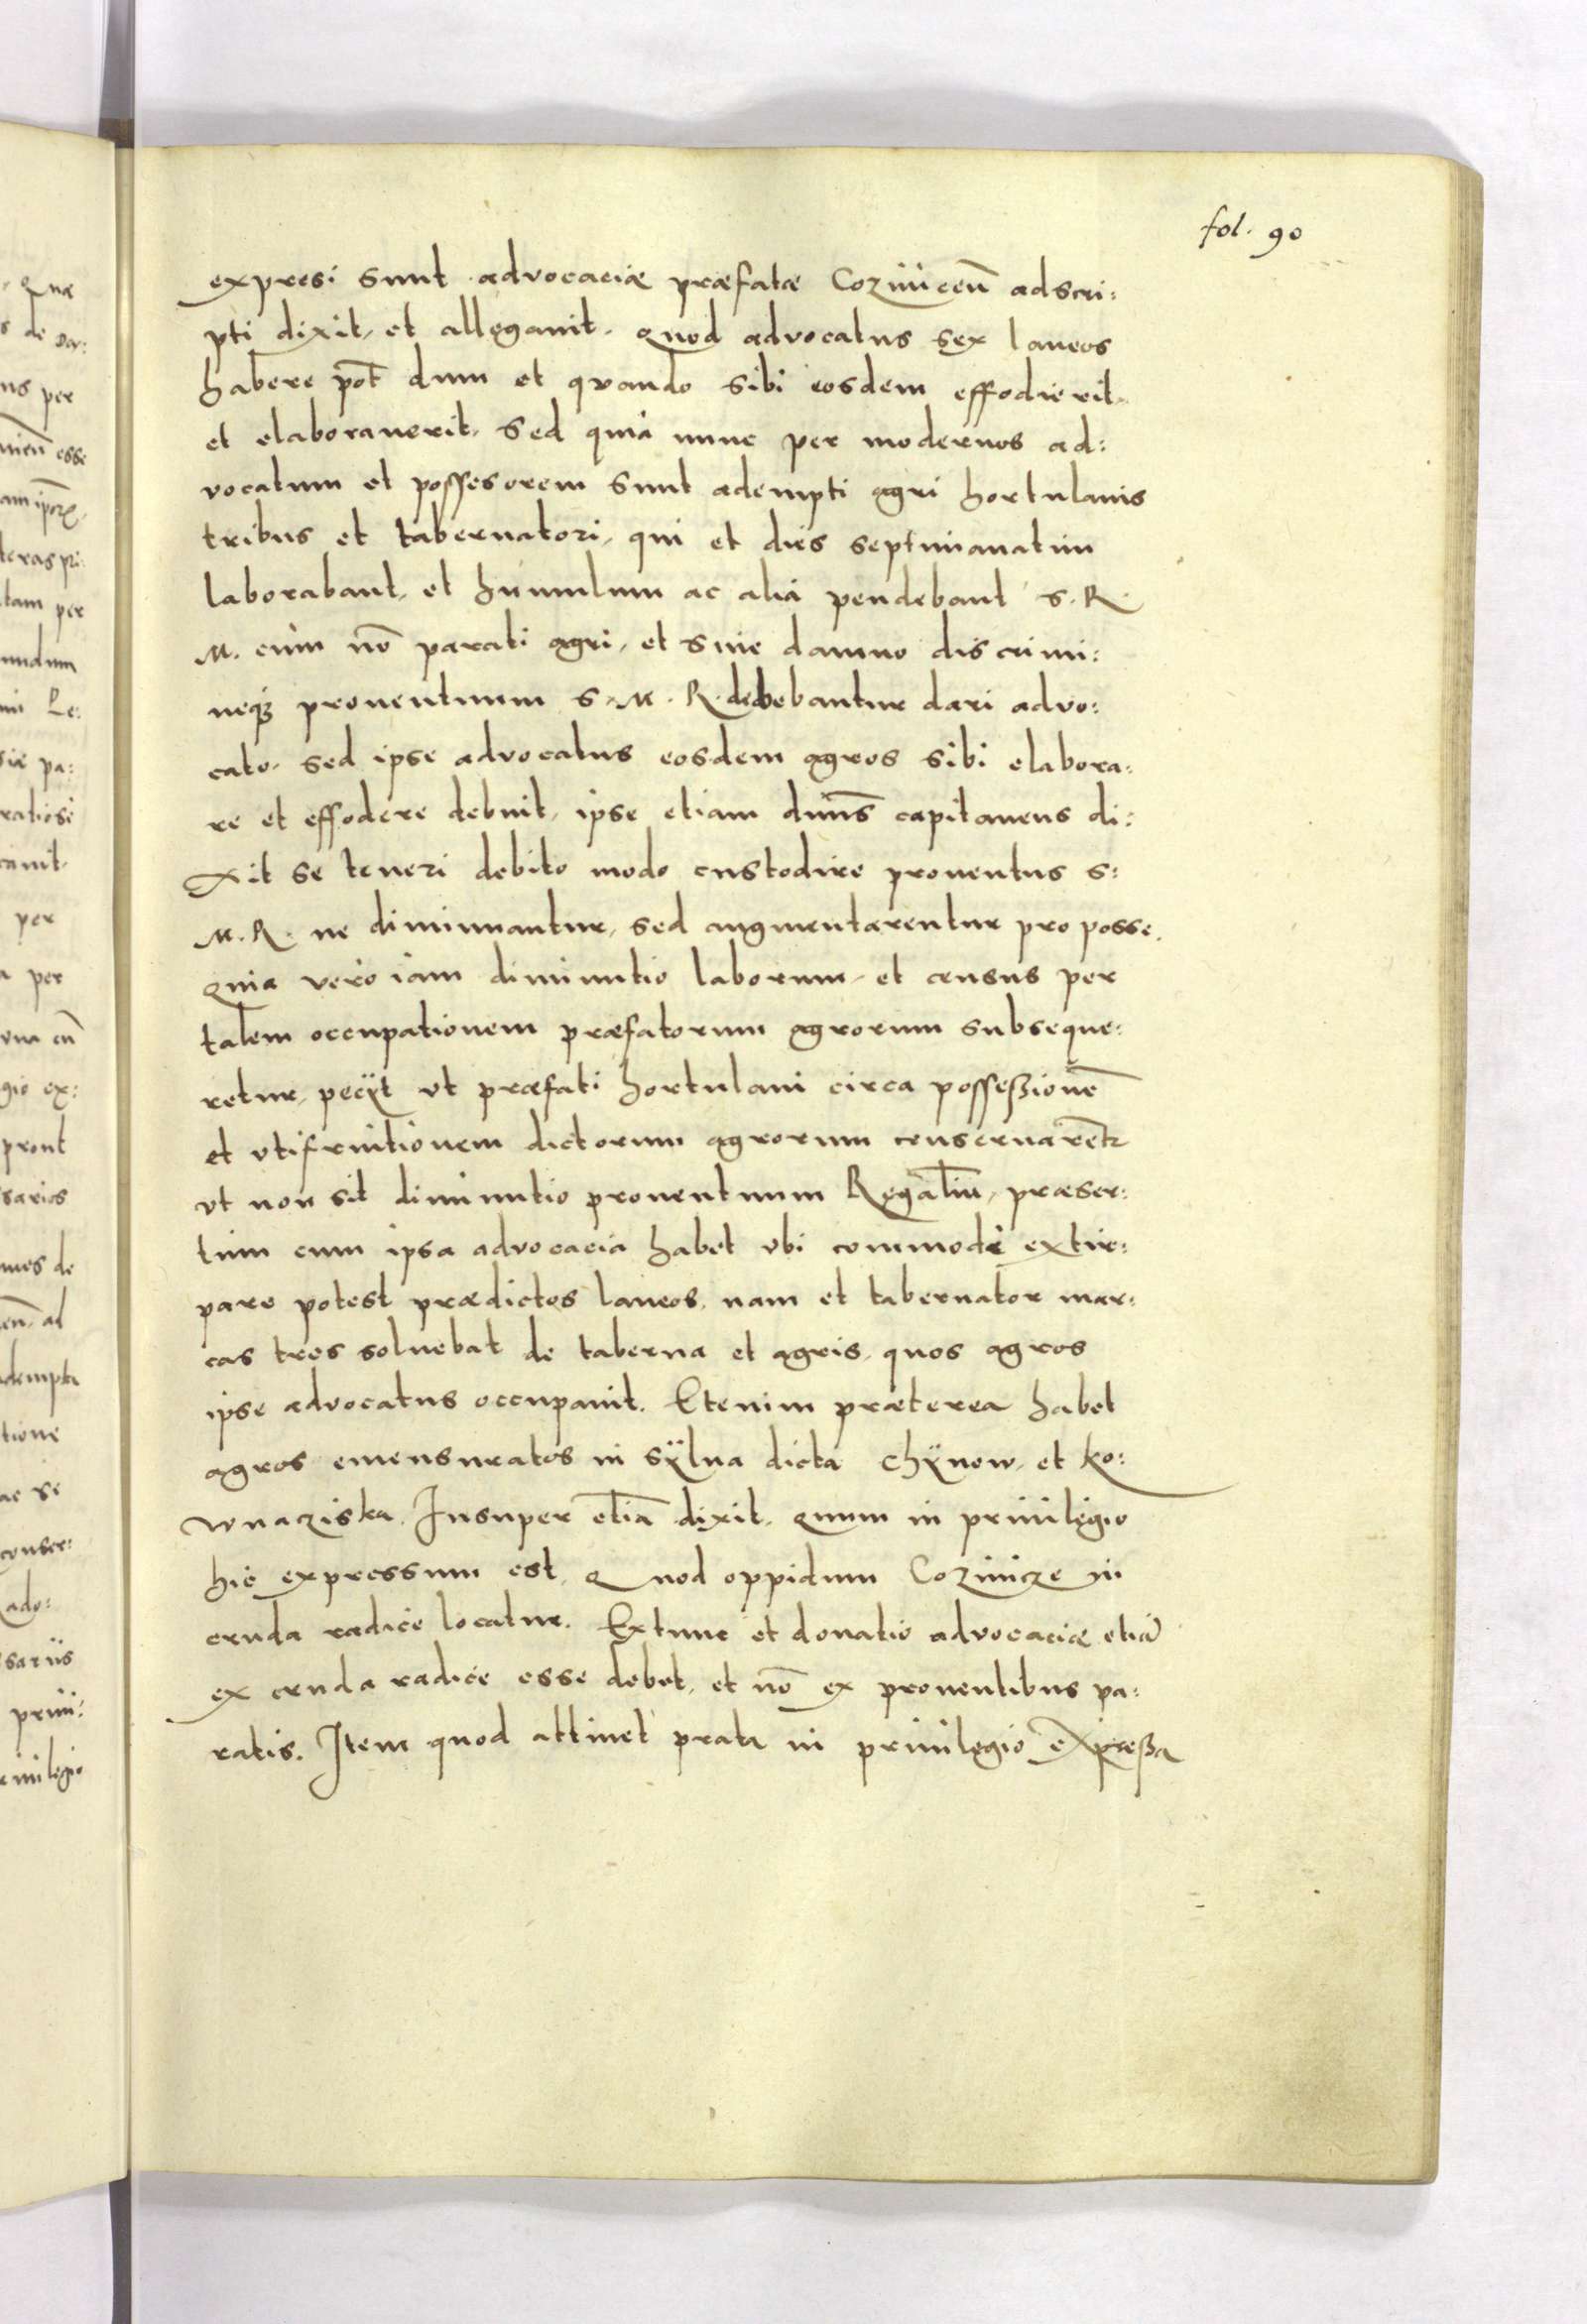 fol. 90
expresi sunt advocaciæ præfatæ Coziniceñ adscri:
pti dixit, et allegauit. Quod advocatus sex laneos
habere pot̃ dum et quando sibi eosdem effodierit
et elaborauerit. Sed quia nunc per modernos ad:
vocatum et possesorem sunt adempti agri hortulanis
tribus et tabernatori, qui et dies septimanatim
laborabant, et humulum ac alia pendebant S. R.
M. cum nõ parati agri, et sine damno discrimi:
neq3 prouentuum S. M. R. debebantur dari advo:
cato. sed ipse advocatus eosdem agros sibi elabora:
re et effodere debuit, ipse etiam dnus̃ capitaneus di:
xit se teneri debito modo custodire prouentus S:
M. R. ne diminuantur, sed augmentarentur pro posse.
Quia vero iam diminutio laborum, et census per
talem occupationem præfatorum agrorum subseque:
retur, pecÿt vt præfati hortulani circa possessionẽ
et vtifruitionem dictorum agrorum conseruarẽtr
vt non sit diminutio prouentuum Regaliũ, præser:
tim cum ipsa advocacia habet vbi commode extir:
pare potest prædictos laneos, nam et tabernator mar:
cas tres soluebat de taberna et agris, quos agros
ipse advocatus occupauit. Etenim præterea habet
agros emensuratos in sÿlua dicta Chÿnow, et Ko:
wnaziska. Insuper etiã dixit. Quum in priuilegio
hic expressum est, Quod oppidum Cozinicze in
cruda radice locatur. Extunc et donatio advocaciæ etiã
ex cruda radice esse debet, et nõ ex prouentibus pa:
ratis. Item quod attinet prata in priuilegio expressa